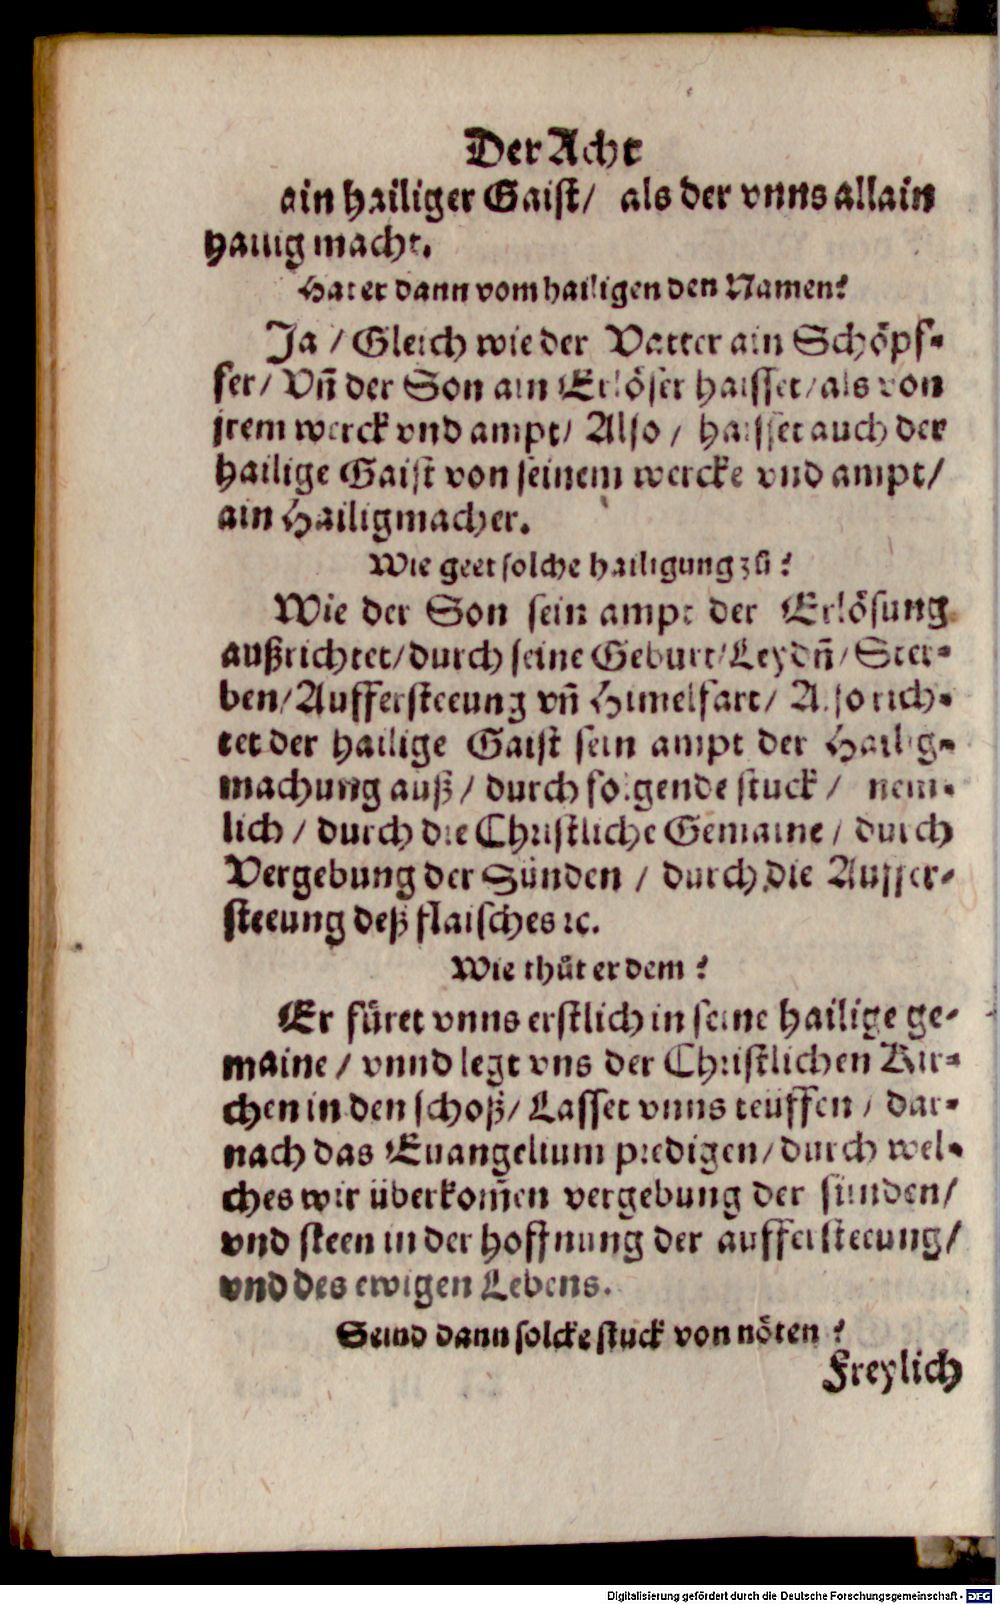 Der Acht
ain hailiger Gaist/ als der vnns allain
hailig macht.
Hat er dann vom hailigen den Namen?
Ja / Gleich wie der Vatter ain Schöpf-
fer/ Vñ der Son ain Erlöser haisset/ als von
jrem werck vnd ampt/ Also / haisset auch der
hailige Gaist von seinem wercke vnd ampt/
ain Hailigmacher.
Wie geet solche hailigung zů?
Wie der Son sein ampt der Erlösung
außrichtet/ durch seine Geburt/ Leydñ/ Ster-
ben/ Auffersteeung vñ Himelfart/ Also rich-
tet der hailige Gaist sein ampt der Hailig-
machung auß/ durch folgende stuck / nem-
lich / durch die Christliche Gemaine / durch
Vergebung der Sünden / durch die Auffer-
steeung deß flaisches ꝛc.
Wie thůt er dem?
Er füret vnns erstlich in seine hailige ge-
maine / vnnd legt vns der Christlichen Kir-
chen in den schoß/ Lasset vnns teüffen / dar-
nach das Euangelium predigen/ durch wel-
ches wir überkom̃en vergebung der sünden/
vnd steen in der hoffnung der auffersteeung/
vnd des ewigen Lebens.
Seind dann solcke stuck von nöten?
Freylich
Digitalisierung gefördert durch die Deutsche Forschungsgemeinschaft - DFG